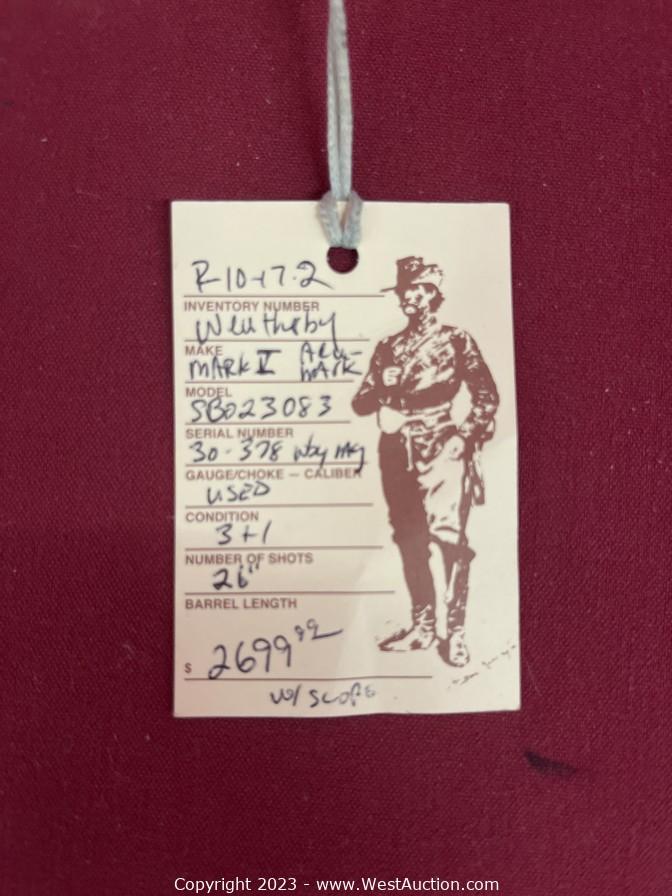 R-10-17-2
INVENTORY NUMBER
Weatherby
MAKE
MARK V Accu-
MARK
MODEL
SB023083
SERIAL NUMBER
30-378 Wby Mag
GAUGE/CHOKE — CALIBER
USED
CONDITION
3+1
NUMBER OF SHOTS
26"
BARREL LENGTH
$ 2699 99
W/ SCOPE
Copyright 2023 - www.WestAuction.com